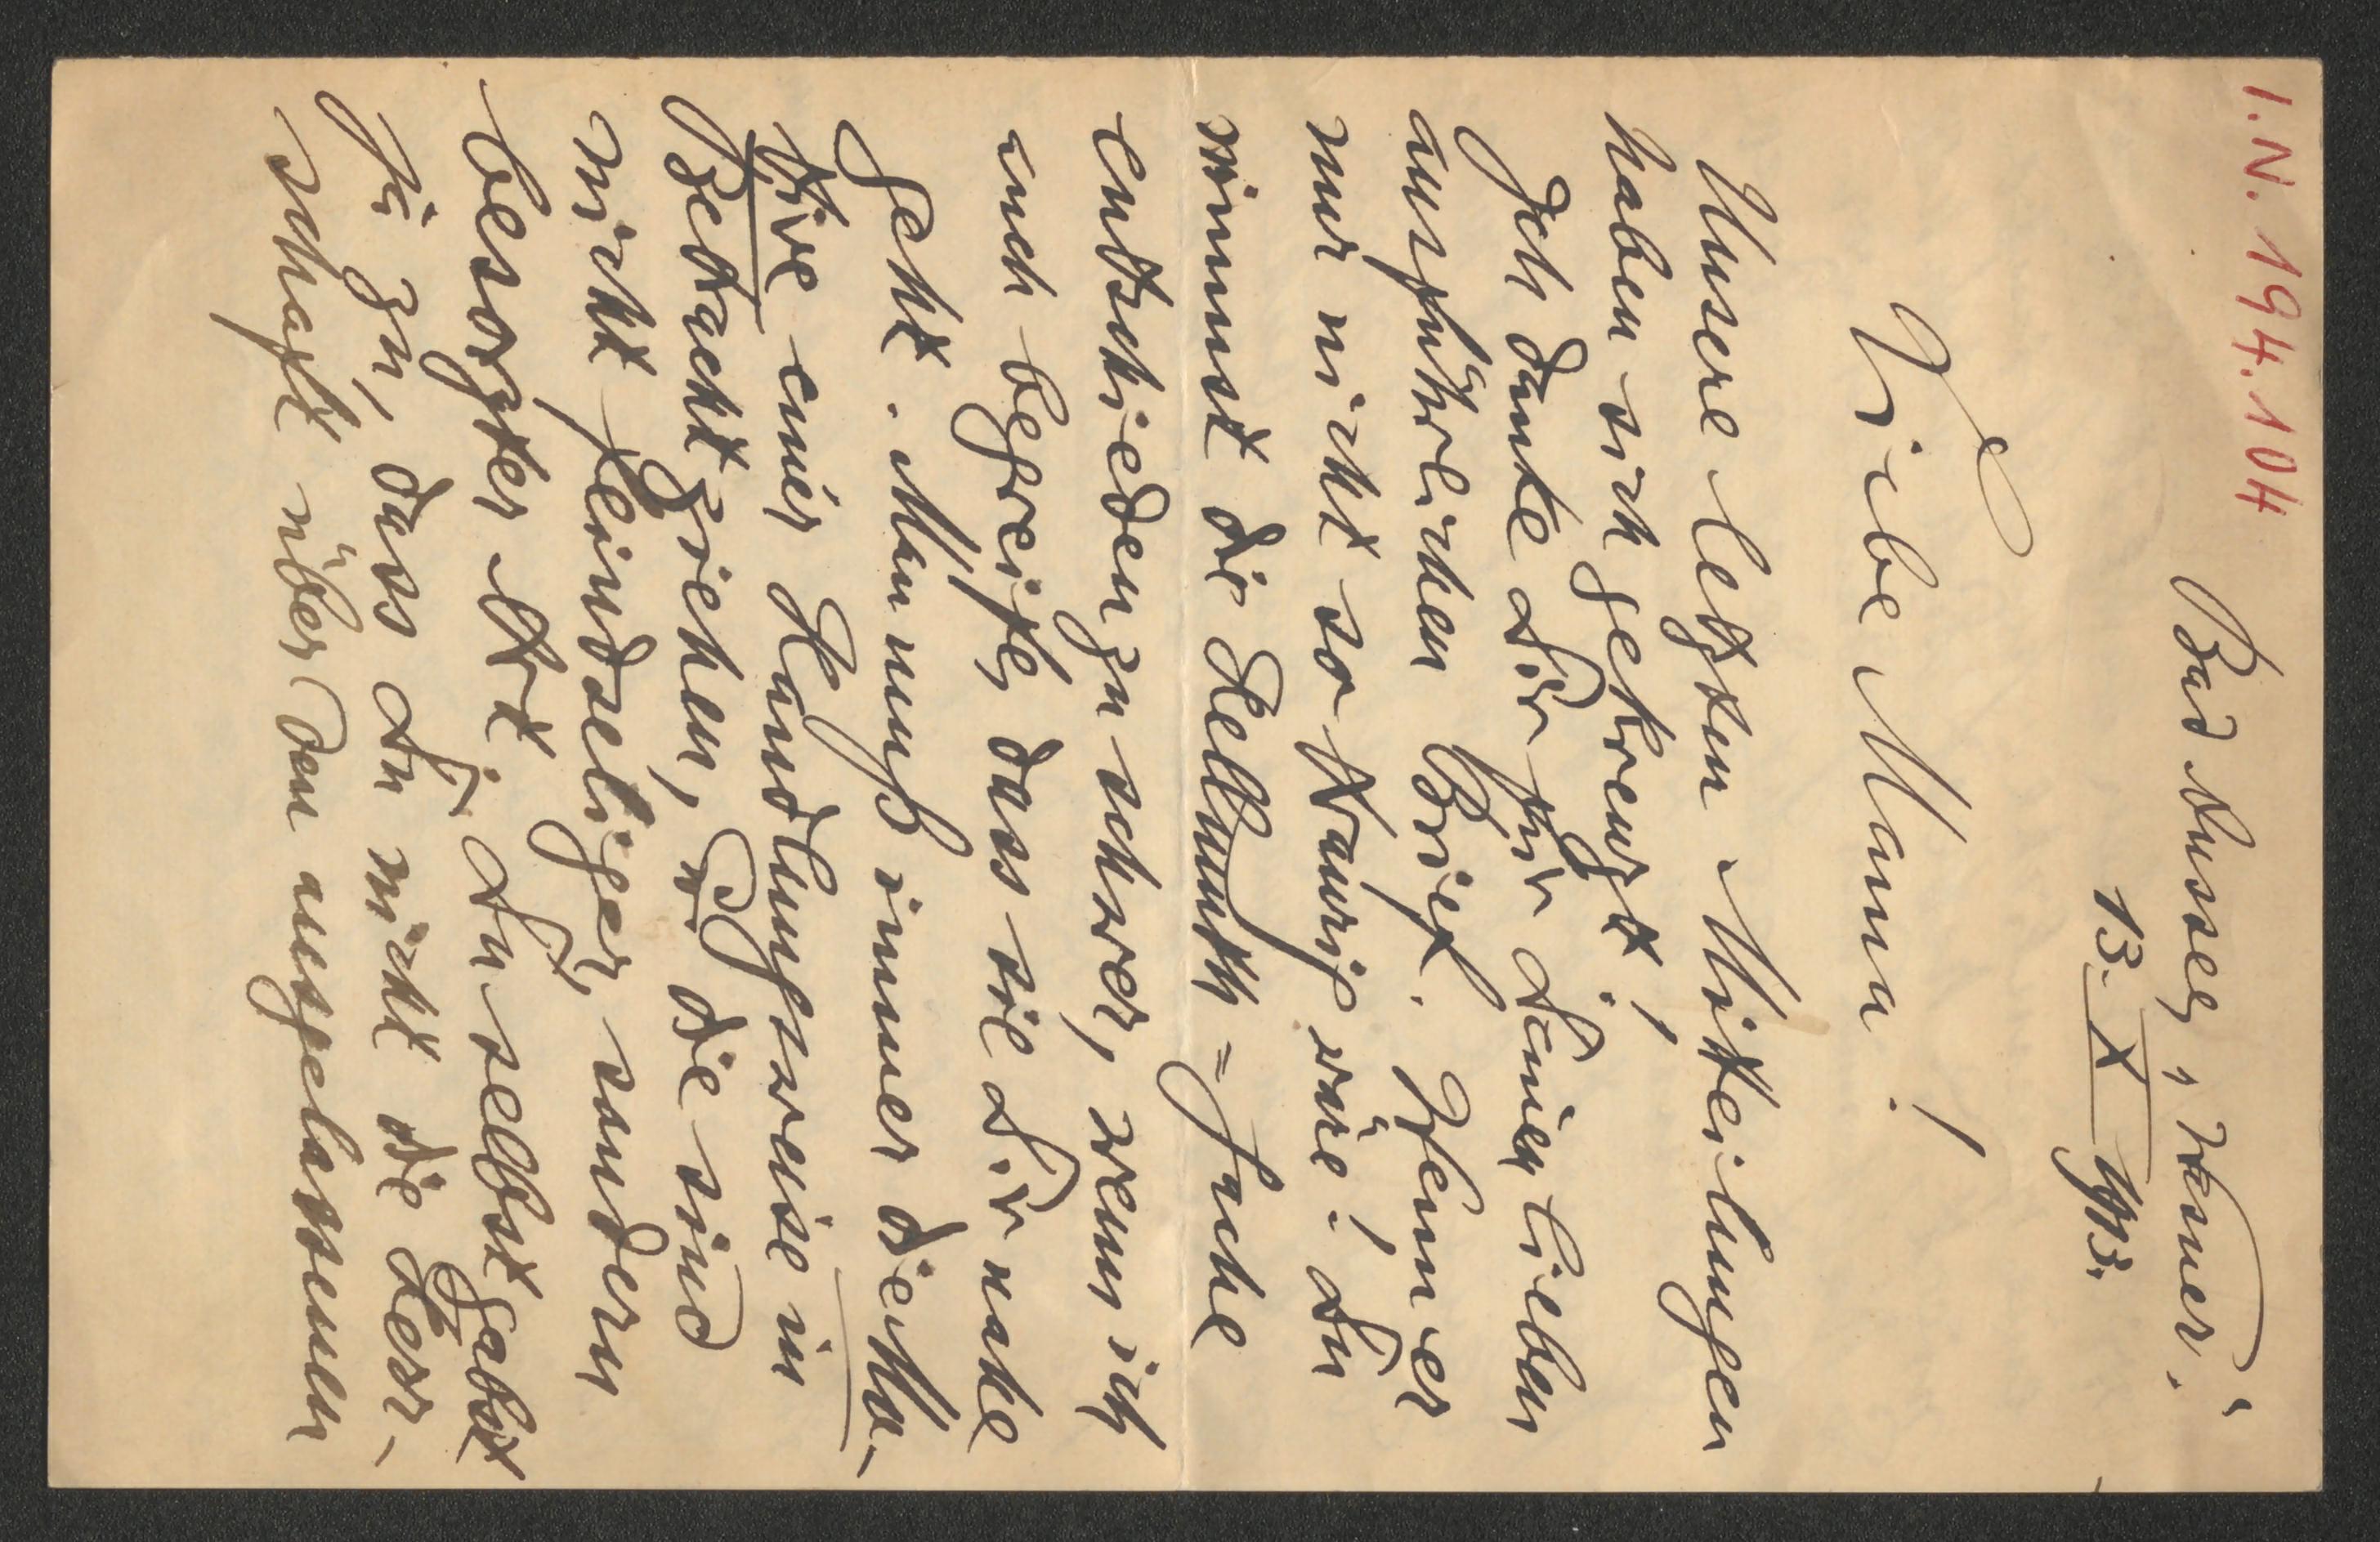 I.N. 194.104
Bad Aussee, Ramer.
13. X 1913.
Liebe Mama!
Unsere letzten Mitteilungen
haben sich gekreuzt!
Ich danke Dir für Deinen lieben
ausführlichen Brief. Wenn er
nur nicht so traurig wäre! Du
nimmst die Hellmuth-Sache
entschieden zu schwer, wenn ich
auch begreife, dass sie Dir nahe
geht. Man muß immer die Mo-
tive einer Handlungsweise in
Betracht ziehen, u. die sind
nicht feindseliger, sondern
besorgter Art. Du selbst gabst
ja zu, dass Du nicht die Herr-
schaft über den ausgelassenen